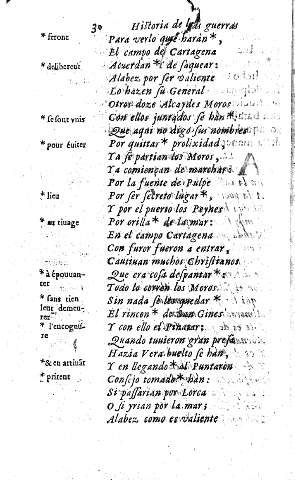 30 Historia de las guerras
* feront Para verlo que harán*,
El campo de Cartagena
* deliberent Acuerdan* de saquear:
Alabez por ser valiente
Lo hazen su General
Otros doze Alcaydes Moros
* se sont vnis Con ellos juntados se hàn*.
Que aqui no digo sus nombres
* pour éuiter Por quitar* prolixidad;
Ya se partian los Moros,
Ya comiençan de marchar:
Por la fuente de Pulpe
* lieu Por ser secreto lugar*,
Y por el puerto los Peynes
* au riuage Por orilla* de la mar:
En el campo Cartagena
Con furor fueron a entrar,
Cautiuan muchos Christianos
* à épouuan-
ter Que era cosa despantar*:
Todo lo corren los Moros
* sans rien
leur demeu-
rer Sin nada se les quedar*
El rincon* de San Gines
* l'encogneu-
re Y con ello el Pinatar;
Quando tuuieron gran presa
Hazia Vera buelto se hàn,
*& en arriuãt Y en llegando* al Puntaron
* prirent Consejo tomado* hàn:
Si passarian por Lorca
O si yrian por la mar;
Alabez como es valiente